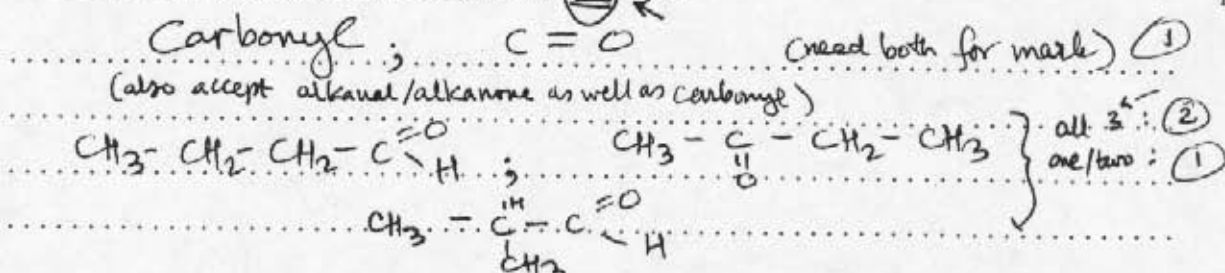 Carbonyl ; C = O (need both for mark) 1
(also accept alkanal/alkanone as well as carbonyl)
CH3 - CH2 - CH2 - C =O \ H ; CH3 - C - CH2 - CH3 } all 3 : 2
|| O one/two : 1
CH3 - C H - C =O \ H
CH3